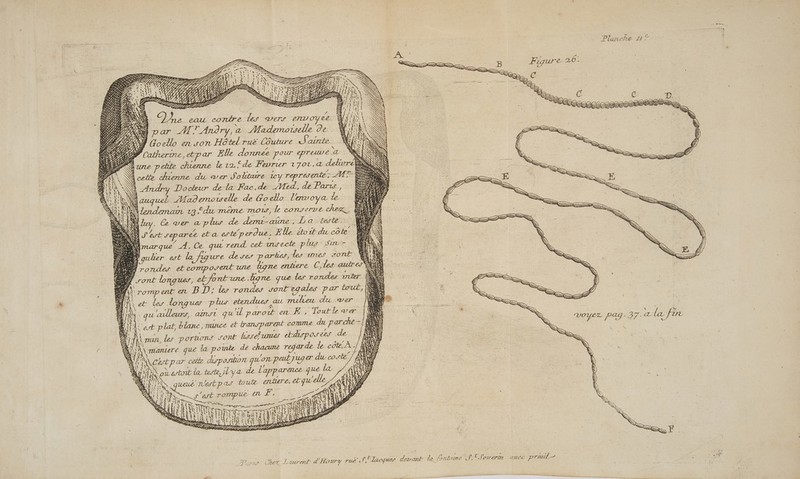 Planche 21.e
Figure 26.
A
B
C
C
C
D.
E
E
E
F
Vne eau contre les vers envoyée
par M.r Andry, a Mademoiselle De
Goello en son Hôtel ruë Coûture Sainte
Catherine, et par Elle donnée pour epreuve a
une petite chienne le 12.e de Feurier 1701. a delivré
cette chienne du ver Solitaire icy representé; M.r
Andry Docteur de la Fac. de Med. de Paris,
auquel Mademoiselle de Goello l'envoya le
lendemain 13.e du même mois, le conserve chez
luy. Ce ver a plus de demi-aûne. La teste
s'est separée et a esté perdue. Elle étoit du côté
marqué A. Ce qui rend cet insecte plus sin-
gulier est la figure de ses parties, les unes sont
rondes et composent une ligne entiere C, les autres
sont longues, et font une ligne que les rondes inter
rompent en B D; les rondes sont egales par tout,
et les longues plus etendues au milieu du ver
qu'ailleurs, ainsi qu'il paroit en E, Tout le ver
est plat, blanc, mince et transparent comme du parche-
min, les portions sont lisses, unies et disposées de
maniere que la pointe de chacune regarde le côté A.
C'est par cette disposition qu'on peut juger du costé
ou estoit la teste, il y a de l'apparence que la
queuë n'est pas toute entiere, et qu'elle
s'est rompuë en F.
voyez pag. 37. a la fin
Paris Chez Laurent d'Houry ruë S.t Iacques devant la fontaine S.t Severin avec privil.